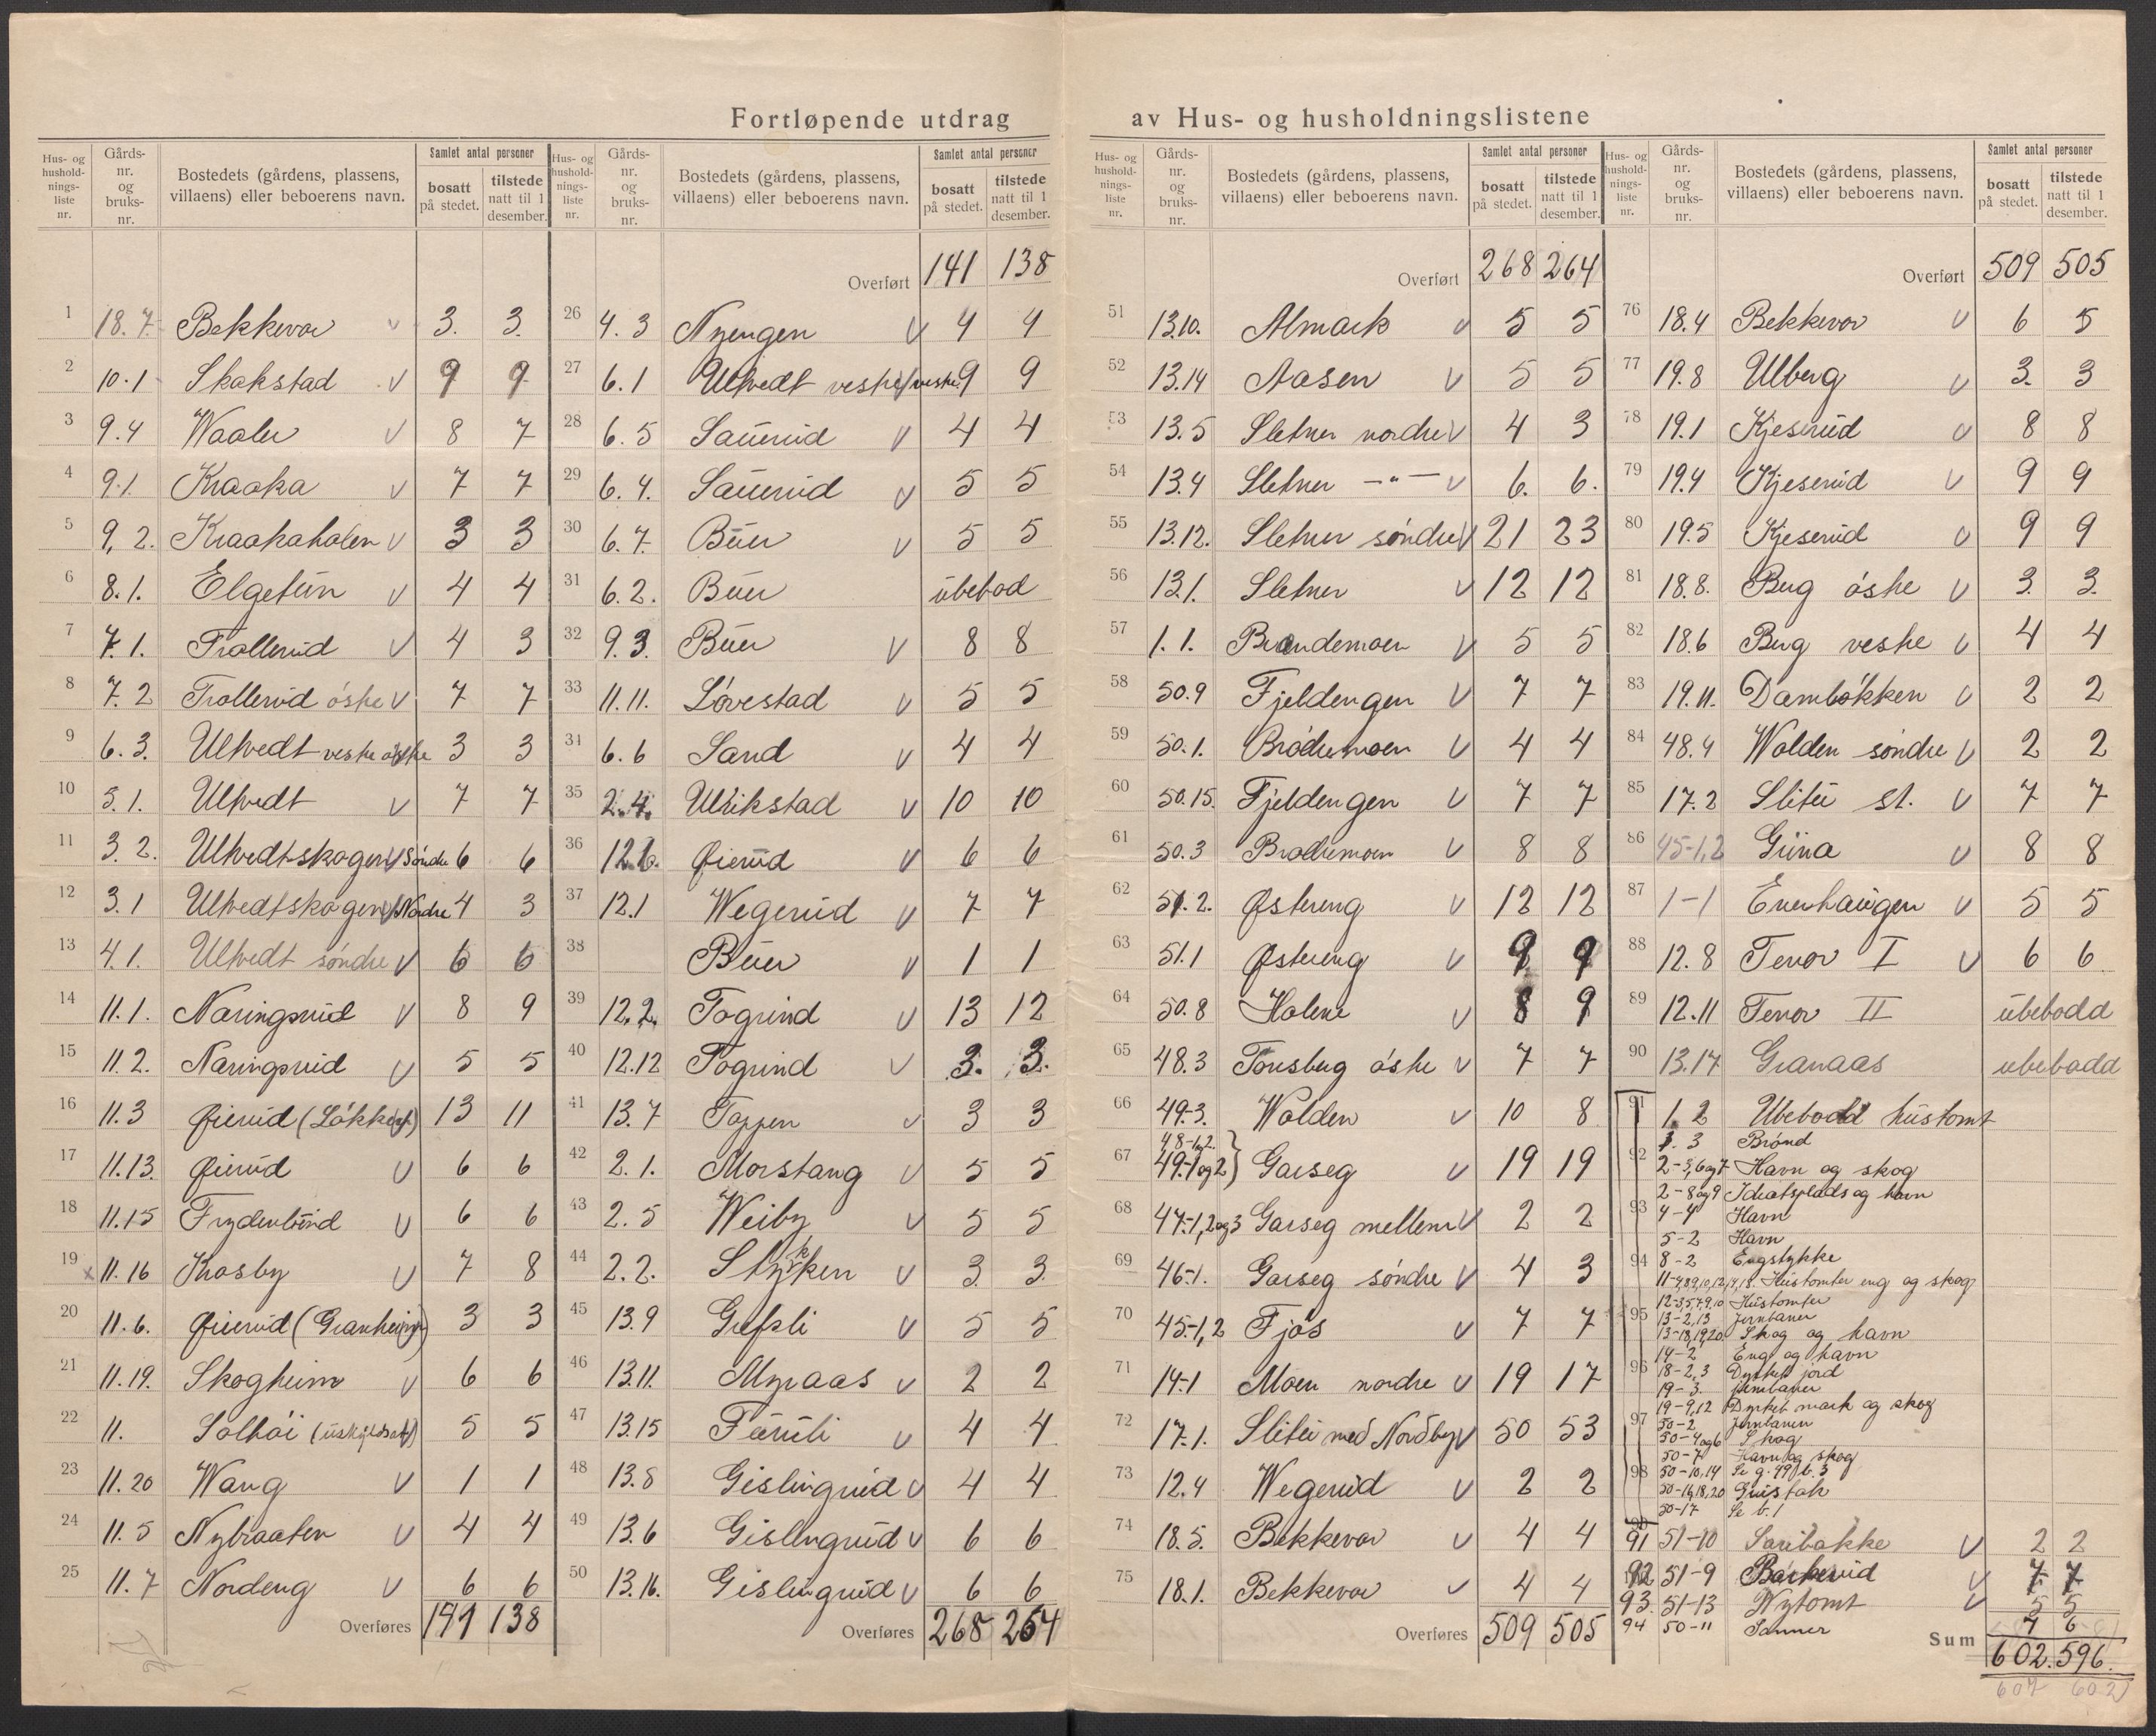 Fortløpende utdrag av Hus- og husholdningslistene
Hus- og hushold-nings-liste nr. Gårds-nr. og bruks-nr. Bostedets (gårdens, plassens, villaens) eller beboerens navn. Samlet antal personer bosatt på stedet. tilstede natt til 1 desember.
1 18.7 Bekkevar v 3. 3.
2 10.1 Skakstad v 9 9
3 9.4 Waaler v 8 7
4 9.1 Kraaka v 7 7
5 9,2. Kraakaholen v 3 3
6 8.1. Elgetun v 4 4
7 7.1. Trollerud v 4 3
8 7.2 Trollerud østre v 7 7
9 6.3. Ultvedt vestre østre 3 3
10 5.1. Ultvedt v 7 7
11 3.2. Ultvedtskogen v Søndre 6 6
12 3.1 Ultvedtskogen v Nordre 4 3
13 4.1. Ultvedt søndre v 6 6
14 11.1. Naringsrud v 8 9
15 11.2. Naringsrud v 5 5
16 11.3 Øierud (Løkken) 13 11
17 11.13. Øierud v 6 6
18 11.15 Frydenlund v 6 6
19 x 11.16 Kosby v 7 8
20 11.6. Øierud (Granheim) 3 3
21 11.19. Skogheim v 6 6
22 11. Solhøi (uskyldsat) 5 5
23 11.20 Wang v 1 1
24 11.5 Nybraaten v 4 4
25 11.7 Nordeng v 6 6
Overføres 141 138
Hus- og hushold-nings-liste nr. Gårds-nr. og bruks-nr. Bostedets (gårdens, plassens, villaens) eller beboerens navn. Samlet antal personer bosatt på stedet. tilstede natt til 1 desember.
Overført 141 138
26 4.3 Nyengen v 4 4
27 6.1 Ultvedt vestre vestre 9 9
28 6.5 Sauerud v 4 4
29 6.4. Sauerud v 5 5
30 6.7. Buer v 5 5
31 6.2. Buer ubebod
32 9.3. Buer v 8 8
33 11.11. Løvestad v 5 5
34 6.6 Sand v 4 4
35 2.4. Ulrikstad v 10 10
36 12.6. Øierud v 6 6
37 12.1 Wegerud v 7 7
38 Buer v 1 1
39 12.2. Togrind v 13 12
40 12.12 Togrind v 3. 3.
41 13.7 Toppen v 3 3
42 2.1. Morstang v 5 5
43 2.5 Weiby v 5 5
44 2.2. Stykken v 3. 3.
45 13.9 Gufsli v 5 5
46 13.11. Myraas v 2 2
47 13.15 Furuli v 4 4
48 13.8 Gislingrud v 4 4
49 13.6 Gislingrud v 6 6
50 13.16. Gislingrud v 6 6
Overføres 268 264
Hus- og hushold-nings-liste nr. Gårds-nr. og bruks-nr. Bostedets (gårdens, plassens, villaens) eller beboerens navn. Samlet antal personer bosatt på stedet. tilstede natt til 1 desember.
Overført 268 264
51 13.10. Almark v 5 5
52 13.14 Aasen v 5 5
53 13.5 Sletner nordre v 4 3
54 13.4 Sletner —"— v 6. 6.
55 13.12. Sletner søndre v 21 23
56 13.1. Sletner v 12 12
57 1.1. Brandemoen v 5 5
58 50.9 Fjeldengen v 7 7
59 50.1. Brødremoen v 4 4
60 50.15. Fjeldengen v 7 7
61 50.3 Brødremoen v 8 8
62 51.2. Østereng v 12 12
63 51.1 Østereng v 9 9
64 50.8 Holene v 8 9
65 48.3 Tonsberg østre v 7 7
66 49.3. Wolden v 10 8
67 48-1,2. 49-1og2 } Garseg v 19 19
68 47-1,2og3 Garseg mellem v 2 2
69 46-1. Garseg søndre v 4 3
70 45-1,2 Fjøs v 7 7
71 14-1 Moen nordre v 19 17
72 17-1. Slitu med Nordby v 50 53
73 12.4 Wegerud v 2 2
74 18.5. Bekkevar v 4 4
75 18.1. Bekkevar v 4 4
Overføres 509 505
Hus- og hushold-nings-liste nr. Gårds-nr. og bruks-nr. Bostedets (gårdens, plassens, villaens) eller beboerens navn. Samlet antal personer bosatt på stedet. tilstede natt til 1 desember.
Overført 509 505
76 18.4 Bekkevar v 6 5
77 19.8 Ulberg v 3. 3
78 19.1 Kjeserud v 8 8
79 19.4 Kjeserud v 9 9
80 19.5 Kjeserud v 9 9
81 18.8. Berg østre v 3. 3.
82 18.6 Berg vestre v 4 4
83 19.11. Dambøkken v 2 2
84 48.4 Wolden søndre v 2 2
85 17.2 Slitu st. v 7 7
86 45-1,2 Guna v 8 8
87 1-1 Enerhaugen v 5 5
88 12.8 Tenor I v 6 6
89 12.11 Tenor II ubebodd
90 13.17 Granaas ubebodd
91 1.2 Ubebodd hustomt
1.3 Brønd
92 2-3,6og7 Havn og skog
2-8og9 Idrætsplads og havn
93 4-4 Havn
5-2 Havn
94 8-2 Engstykke
11-4,8,9,10,12,14,18. Hustomter eng og skog
12-3,5,7,9,10 Hustomter
95 13-2,13 Jernbanen
13-18,19,20 Skog og havn
14-2 Eng og havn
96 18-2,3 Dyrket jord
19-3. Jernbanen
19-9,12 Dyrket mark og skog
97 50-2 Jernbanen
50-4og6 Skog
50-7 Havn og skog
98 50-10,14 Se g. 49 b. 3
50-16,18,20 Grustak
50-17 Se b.1
91 51-10 Sarebakke v 2 2
92 51-9 v 7 7
93. 51-13 Nytomt v 5 5
94 50-11 Sanner 7 6
Sum 602. 596.
607 602